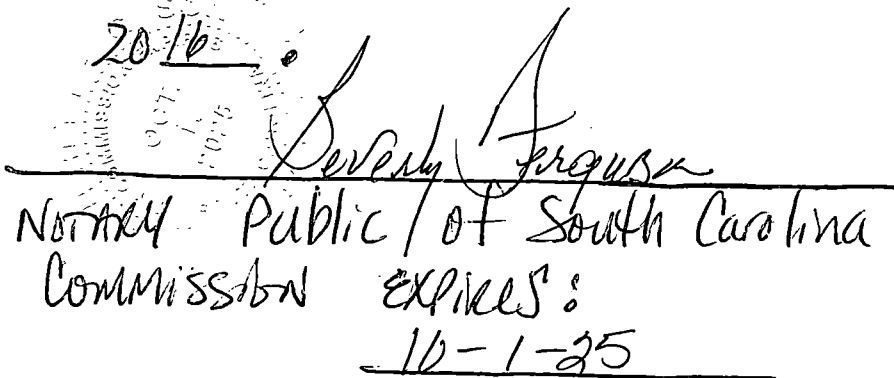 2016.
Beverly Ferguson
Notary Public of South Carolina
Commission Expires:
10-1-25